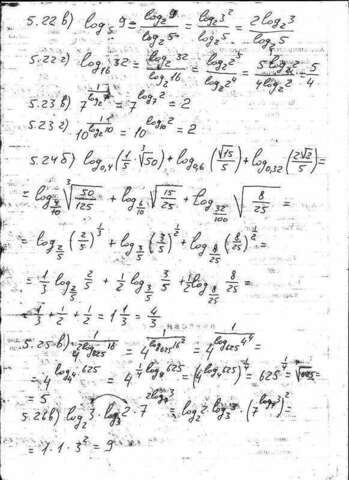 5.22 в) log₅ 9 = log₂ 9 / log₂ 5 = log₂ 3² / log₂ 5 = 2 log₂ 3 / log₂ 5
5.22 г) log₁₆ 32 = log₂ 32 / log₂ 16 = log₂ 2⁵ / log₂ 2⁴ = 5 log₂ 2 / 4 log₂ 2 = 5/4
5.23 в) 7^(1/log₂ 7) = 7^(log₇ 2) = 2
5.23 г) 10^(1/log₂ 10) = 10^(log₁₀ 2) = 2
5.24 б) log₀,₄ (1/5 · ∛50) + log₀,₆ (√15/5) + log₀,₃₂ (2√2/5) =
= log_(4/10) ∛(50/125) + log_(6/10) √(15/25) + log_(32/100) √(8/25) =
= log_(2/5) (2/5)^(1/3) + log_(3/5) (3/5)^(1/2) + log_(8/25) (8/25)^(1/2) =
= 1/3 log_(2/5) 2/5 + 1/2 log_(3/5) 3/5 + 1/2 log_(8/25) 8/25 =
= 1/3 + 1/2 + 1/2 = 1 1/3 = 4/3
5.25 в) 4^(1/(2 log₆₂₅ 16)) = 4^(1/log₆₂₅ 16²) = 4^(1/log₆₂₅ 4⁴) =
= 4^(log_(4⁴) 625) = 4^(1/4 log₄ 625) = (4^(log₄ 625))^(1/4) = 625^(1/4) = ∜625 =
= 5
5.26 в) log₂ 3 · log₃ 2 · 7^(2 log₇ 3) = log₂ 2 · log₃ 3 · (7^(log₇ 3))² =
= 1 · 1 · 3² = 9